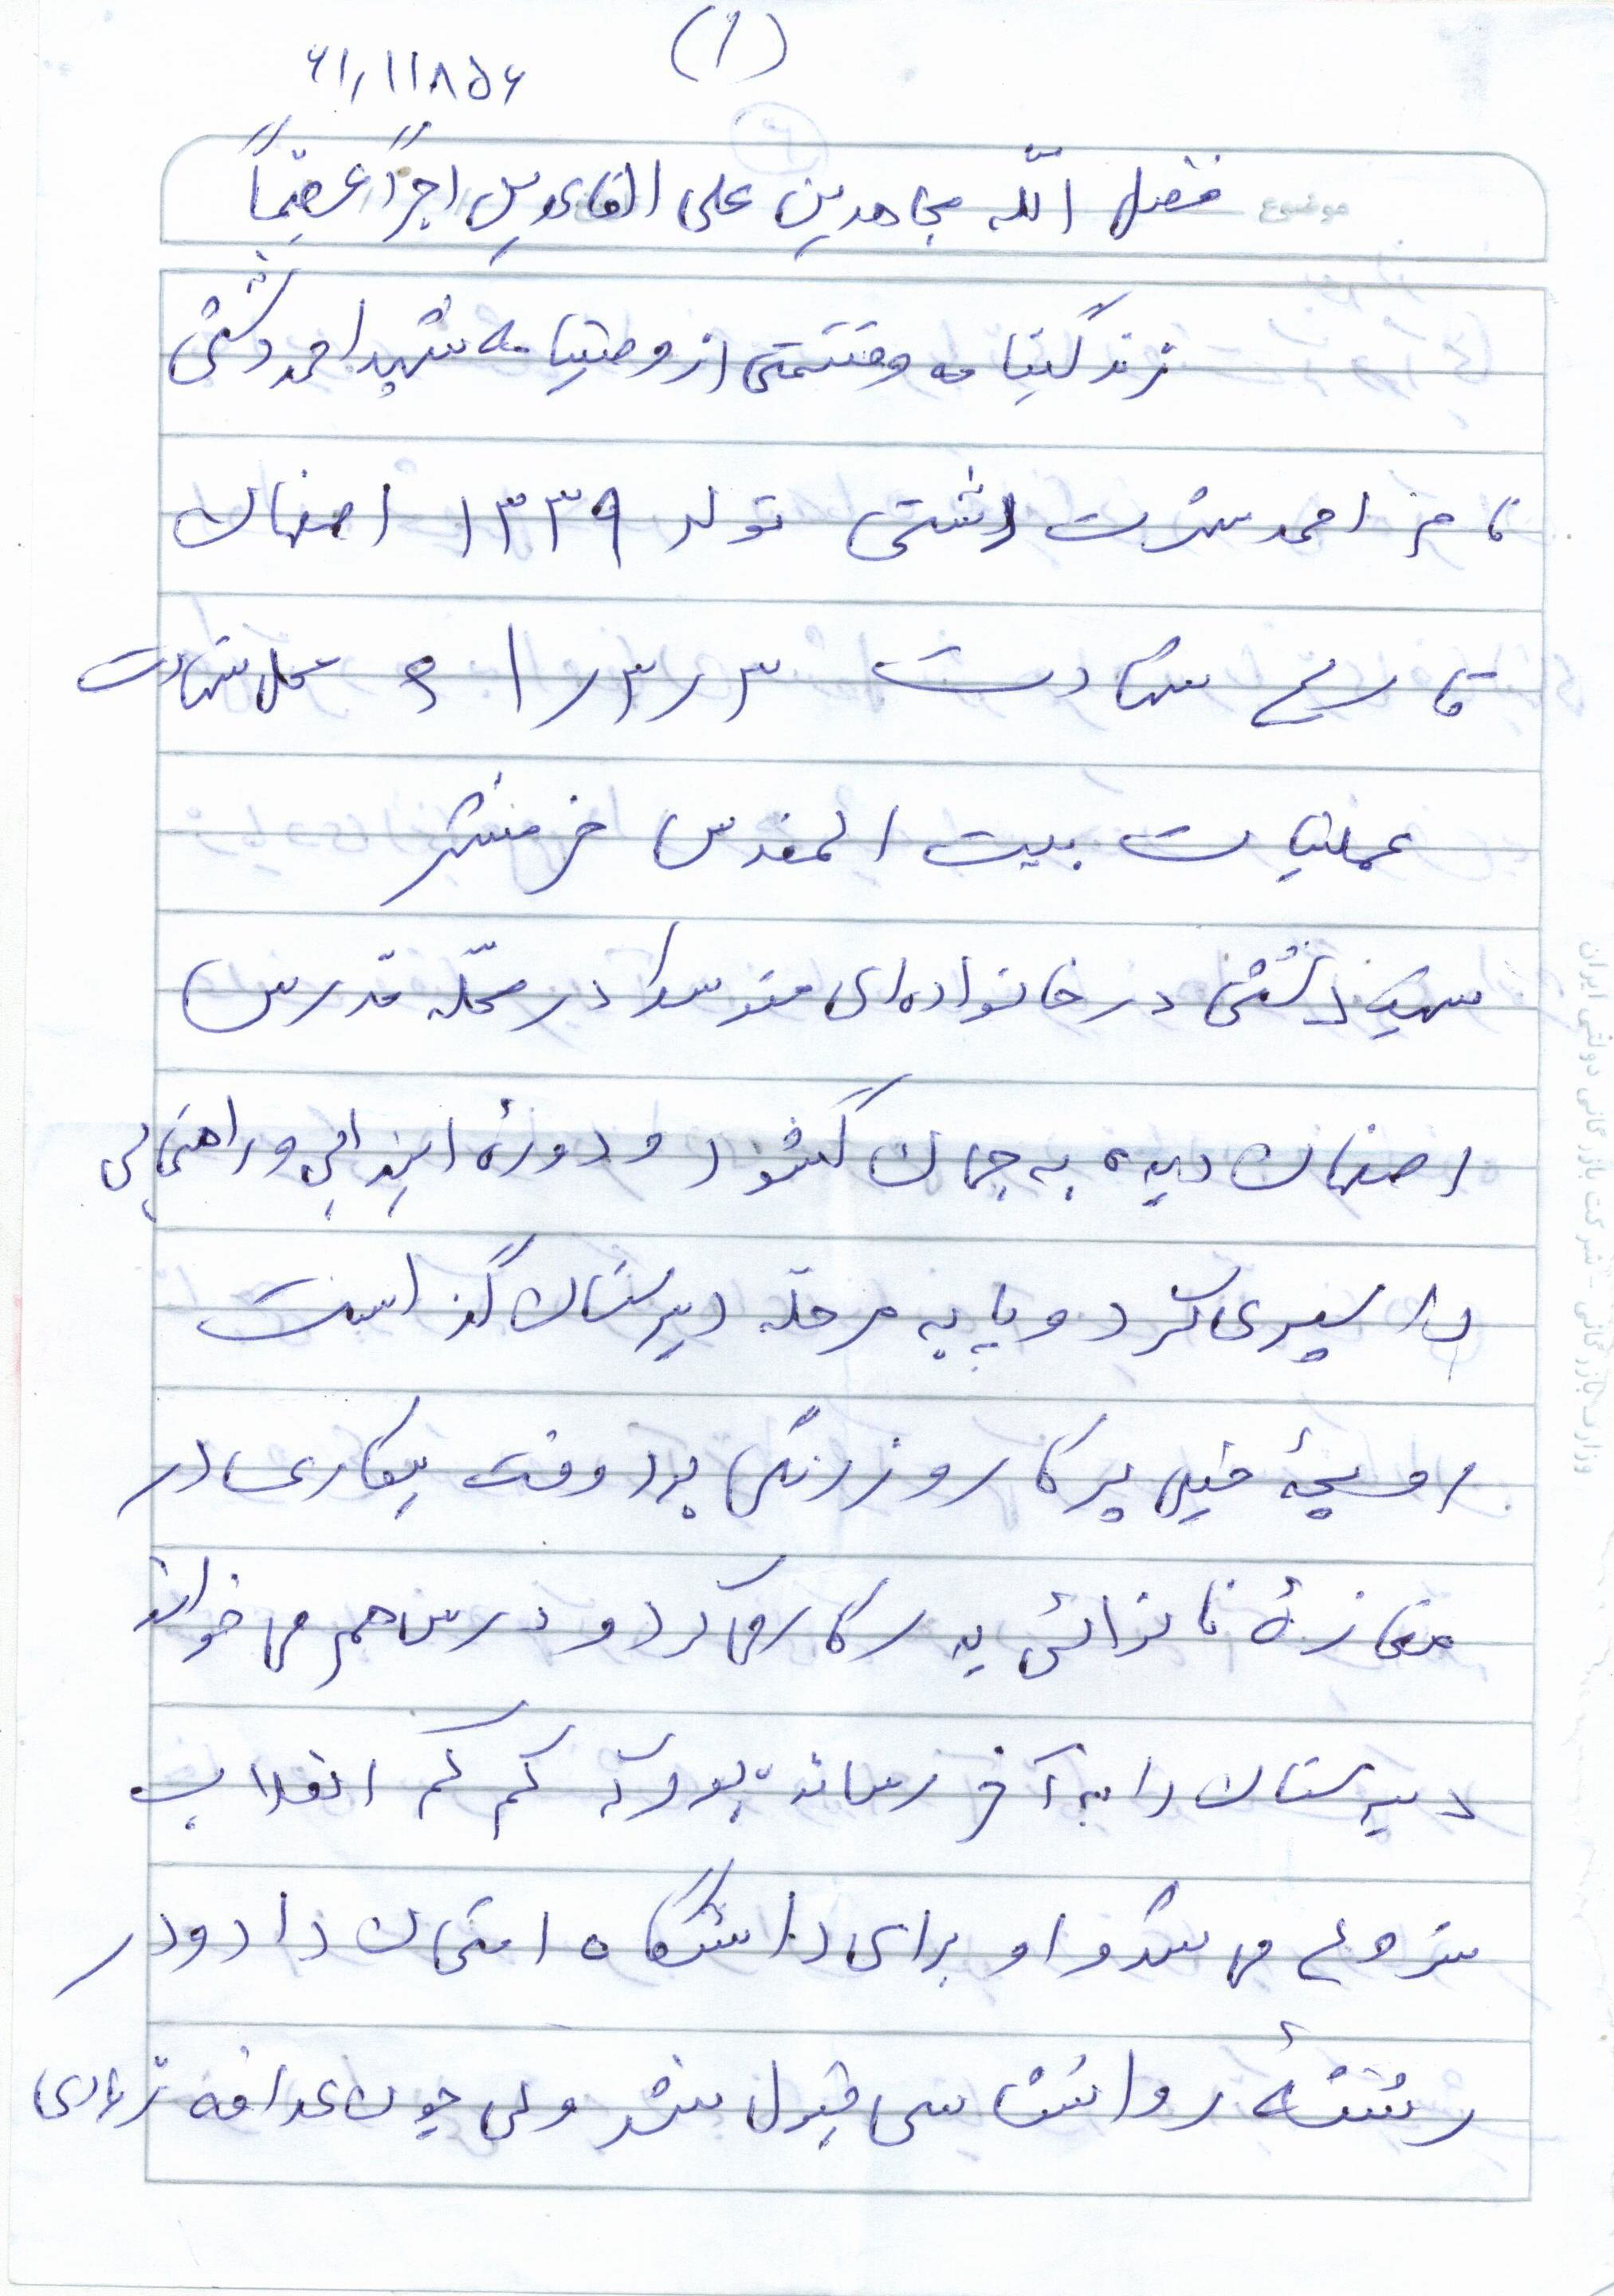 (۱)
۶۱/۱۱۸۵۶
موضوع
فضل الله مجاهدین علی القاعدین اجراً عظیماً
زندگینامه وقسمتی از وصیتنامه شهید احمد دشتی
نام احمد شهرت دشتی تولد ۱۳۳۹ اصفهان
تاریخ شهادت ۶۱/۳/۳ محل شهادت
عملیات بیت المقدس خرمشهر
شهید دشتی در خانواده‌ای متوسط در محلّه قدرس
اصفهان دیده به جهان گشود و دورهٔ ابتدایی و راهنمایی
را سپری کرد و پا به مرحله دبیرستان گذاشت
او بچهٔ خیلی پرکار و زرنگی بود وقت بیکاری در
مغازهٔ نانوائی پدر کار می کرد و درس هم می خواند
دبیرستان را به آخر رسانده بود که کم کم انقلاب
شروع می شد و او برای دانشگاه امتحان داد و در
رشتهٔ روانشناسی قبول شد ولی چون علاقه زیادی
وزارت بازرگانی - شرکت بازرگانی دولتی ایران